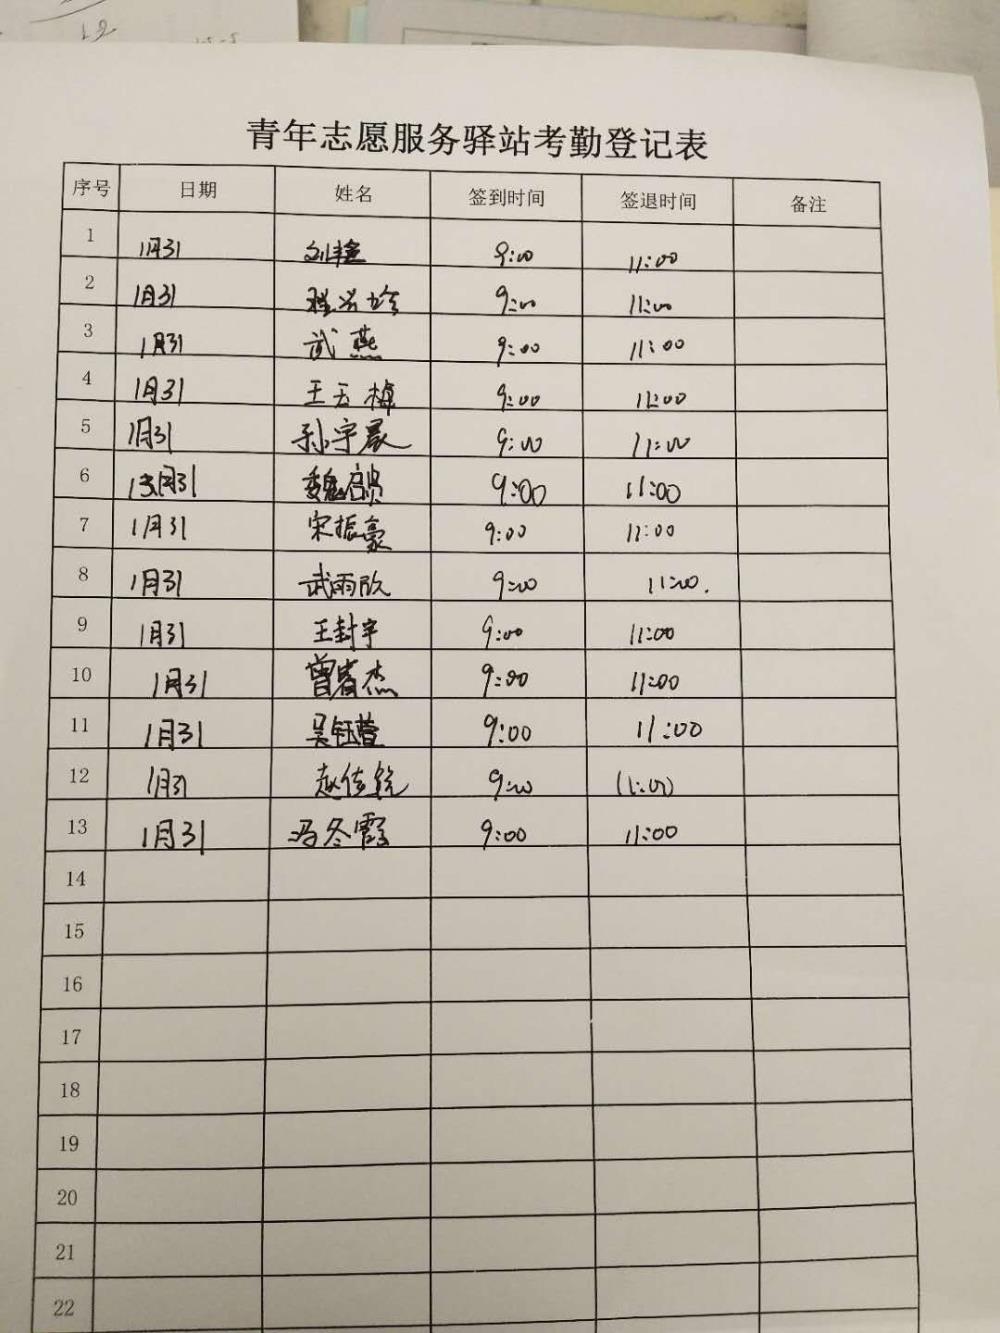 青年志愿服务驿站考勤登记表
序号 日期 姓名 签到时间 签退时间 备注
1 1月31 刘艳 9:00 11:00
2 1月31 9:00 11:00
3 1月31 武燕 9:00 11:00
4 1月31 王玉梅 9:00 11:00
5 1月31 孙宇晨 9:00 11:00
6 1月31 魏 9:00 11:00
7 1月31 宋振豪 9:00 11:00
8 1月31 武雨欣 9:00 11:00.
9 1月31 王封宇 9:00 11:00
10 1月31 曾 杰 9:00 11:00
11 1月31 吴钰萱 9:00 11:00
12 1月31 赵传统 9:00 11:00
13 1月31 冯冬霞 9:00 11:00
14
15
16
17
18
19
20
21
22